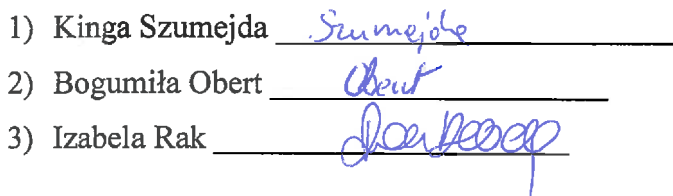 1) Kinga Szumejda Szumejda
2) Bogumiła Obert Obert
3) Izabela Rak